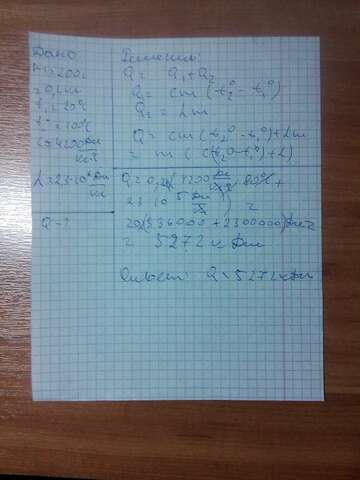 Дано
m=200г
=0,2кг
t₁=20°C
t₂=100°C
C=4200 Дж/кг·°C
L=2,3·10⁶ Дж/кг
Q-?
Решение:
Q = Q₁+Q₂
Q₁ = cm(t₂°-t₁°)
Q₂ = Lm
Q = cm(t₂°-t₁°)+Lm
= m(c(t₂°-t₁°)+L)
(4200 80° +
23·10⁵ Дж/кг) =
(336000 + 2300000)
= 527,2 кДж
Ответ: Q = 527,2 кДж